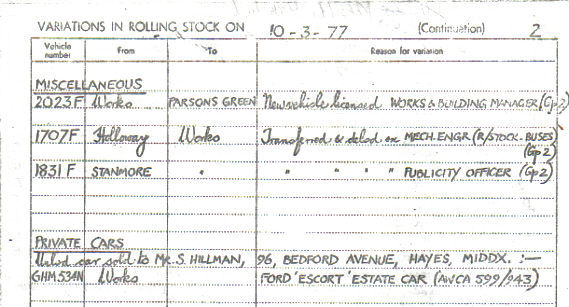 VARIATIONS IN ROLLING STOCK ON 10-3-77 (Continuation) 2
Vehicle number From To Reason for variation
MISCELLANEOUS
2023F Works PARSONS GREEN New vehicle licensed WORKS & BUILDING MANAGER (Gp2)
1707F Holloway Works Transferred & delsd ex MECH. ENGR (R/STOCK-BUSES)
(Gp2)
1831F STANMORE " " " " " PUBLICITY OFFICER (Gp2)
PRIVATE CARS
car sold to Mr. S. HILLMAN, 96, BEDFORD AVENUE, HAYES, MIDDX. :—
GHM534N Works FORD 'ESCORT' ESTATE CAR (AWCA 599/943)